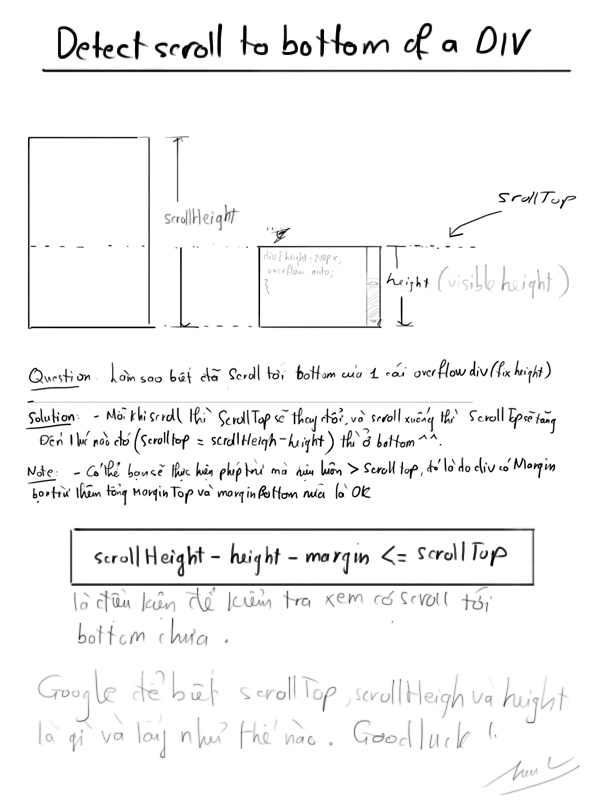 Detect scroll to bottom of a DIV
scrollHeight
scrollTop
div { height: 200px,
overflow auto;
}
height (visible height)
Question. Làm sao biết đã Scroll tới bottom của 1 cái overflow div (fix height)
Solution: - Mỗi khi scroll thì ScrollTop sẽ thay đổi, và scroll xuống thì ScrollTop sẽ tăng
Đến 1 lúc nào đó (Scrolltop = scrollHeigh - height) thì ở bottom ^^.
Note: - Có thể bạn sẽ thực hiện phép trừ mà hiệu luôn > Scroll top, đó là do div có Margin
bạn trừ thêm tổng marginTop và marginBottom nữa là OK
scrollHeight - height - margin <= scrollTop
là điều kiện để kiểm tra xem có scroll tới
bottom chưa.
Google để biết scrollTop, scrollHeigh và height
là gì và lấy như thế nào. Goodluck !